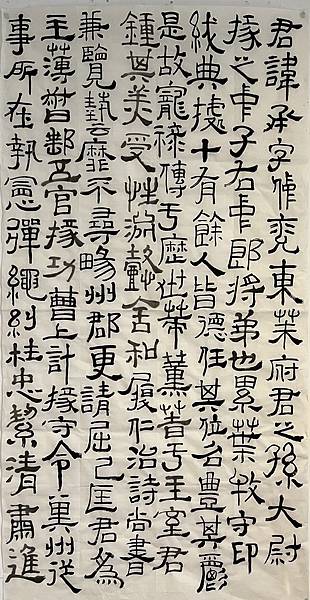 君諱承字仲兗東萊府君之孫大尉
掾之中子右中郎將弟也累葉牧守印
紱典據十有餘人皆德任其位名豐其爵
是故寵祿傳于歷世策薰著于王室君
鍾其美受性淵懿含和履仁治詩尚書
兼覽藝靡不尋暢州郡更請屈己匡君為
主薄督郵五官掾功曹上計掾守令冀州從
事所在執憲彈繩糾枉忠絜清肅進